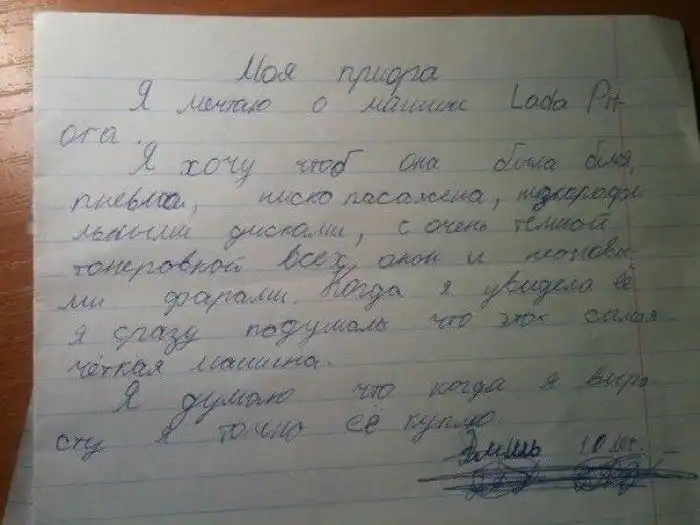 Моя приора
Я мечтаю о машине Lada Pri-
ora.
Я хочу чтоб она была біля,
пневма, ниско пасажена,
льными дисками, с очень тёмной
тонеровкой всех окон и неонови
ми фарами. Когда я увидела её
я сразу подумала что эток самая
чёткая машина.
Я думаю что когда я выро
сту я точно её куплю.
10 лет